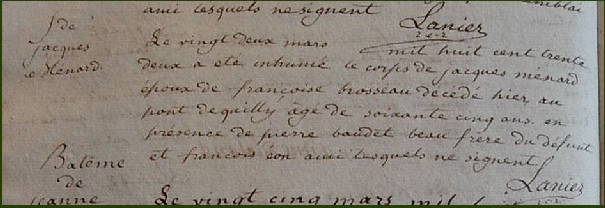 amii lesquels ne signent
Lanier
S de
jacques
Menard
Le vingt deux mars mil huit cent trente
deux a ete inhumé le corps de jacques menard
epoux de françoise brosseau decedé hier au
pont de quilly âgé de soixante cinq ans. en
présence de pierre baudet beau frere du défunt
et francois eon amii lesquels ne signent
Lanier
Batême
de
jeanne
Le vingt cinq mars mil